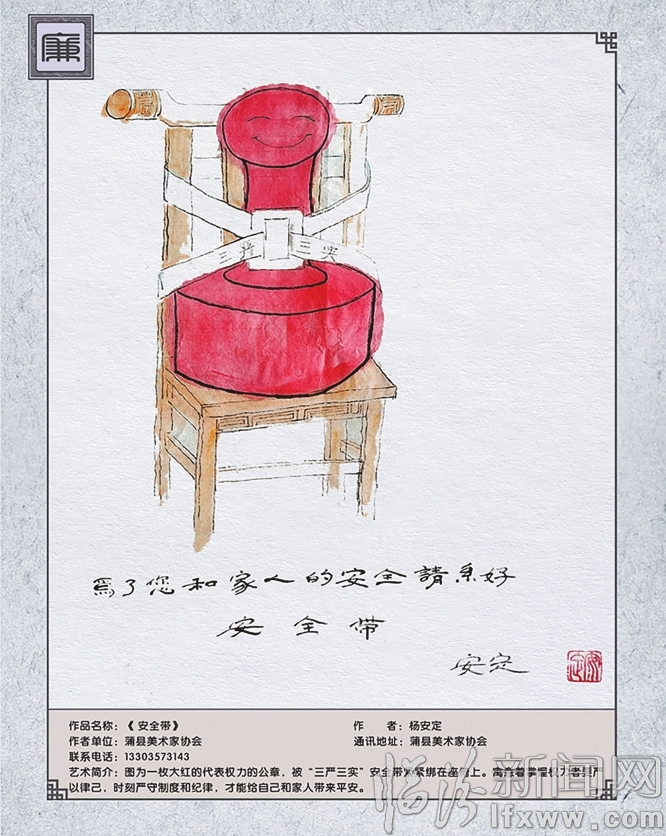 廉
三严 三实
為了您和家人的安全請系好
安全带
安定
作品名称：《安全带》 作 者：杨安定
作者单位：蒲县美术家协会 通讯地址：蒲县美术家协会
联系电话：13303573143
艺术简介：图为一枚大红的代表权力的公章，被“三严三实”安全带紧紧绑在座椅上。寓意着掌握权力者要严
以律己，时刻严守制度和纪律，才能给自己和家人带来平安。
临汾新闻网
lfxww.com